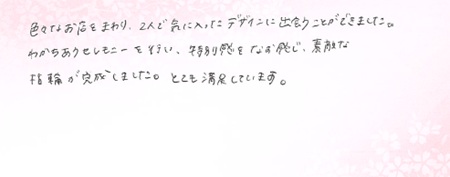 色々なお店をまわり、2人で気に入ったデザインに出会うことができました。
わかちあうセレモニーを行い、特別感をなお感じ、素敵な
指輪が完成しました。とても満足しています。